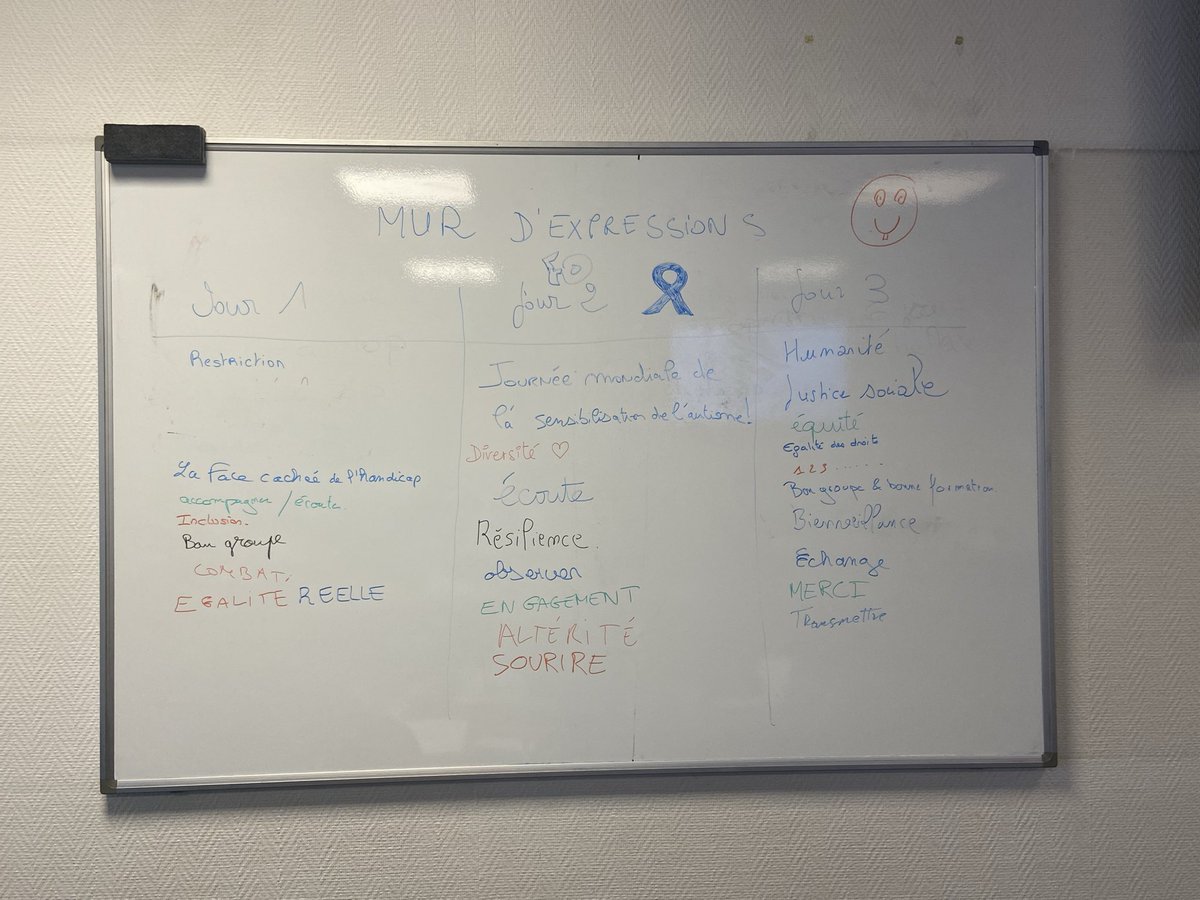 MUR D'EXPRESSIONS
Jour 1
Restriction
La Face cachée de l'handicap
accompagner / Écoute
Inclusion.
Bon groupe
COMBAT.
EGALITE REELLE
jour 2
Journée mondiale de
la sensibilisation de l'autisme!
Diversité ♡
écoute
Résilience.
observer
ENGAGEMENT
ALTÉRITÉ
SOURIRE
Jour 3
Humanité
Justice sociale
équité
Egalité des droits
1 2 3 .......
Bon groupe & bonne formation
Bienveillance
Echange
MERCI
Transmettre